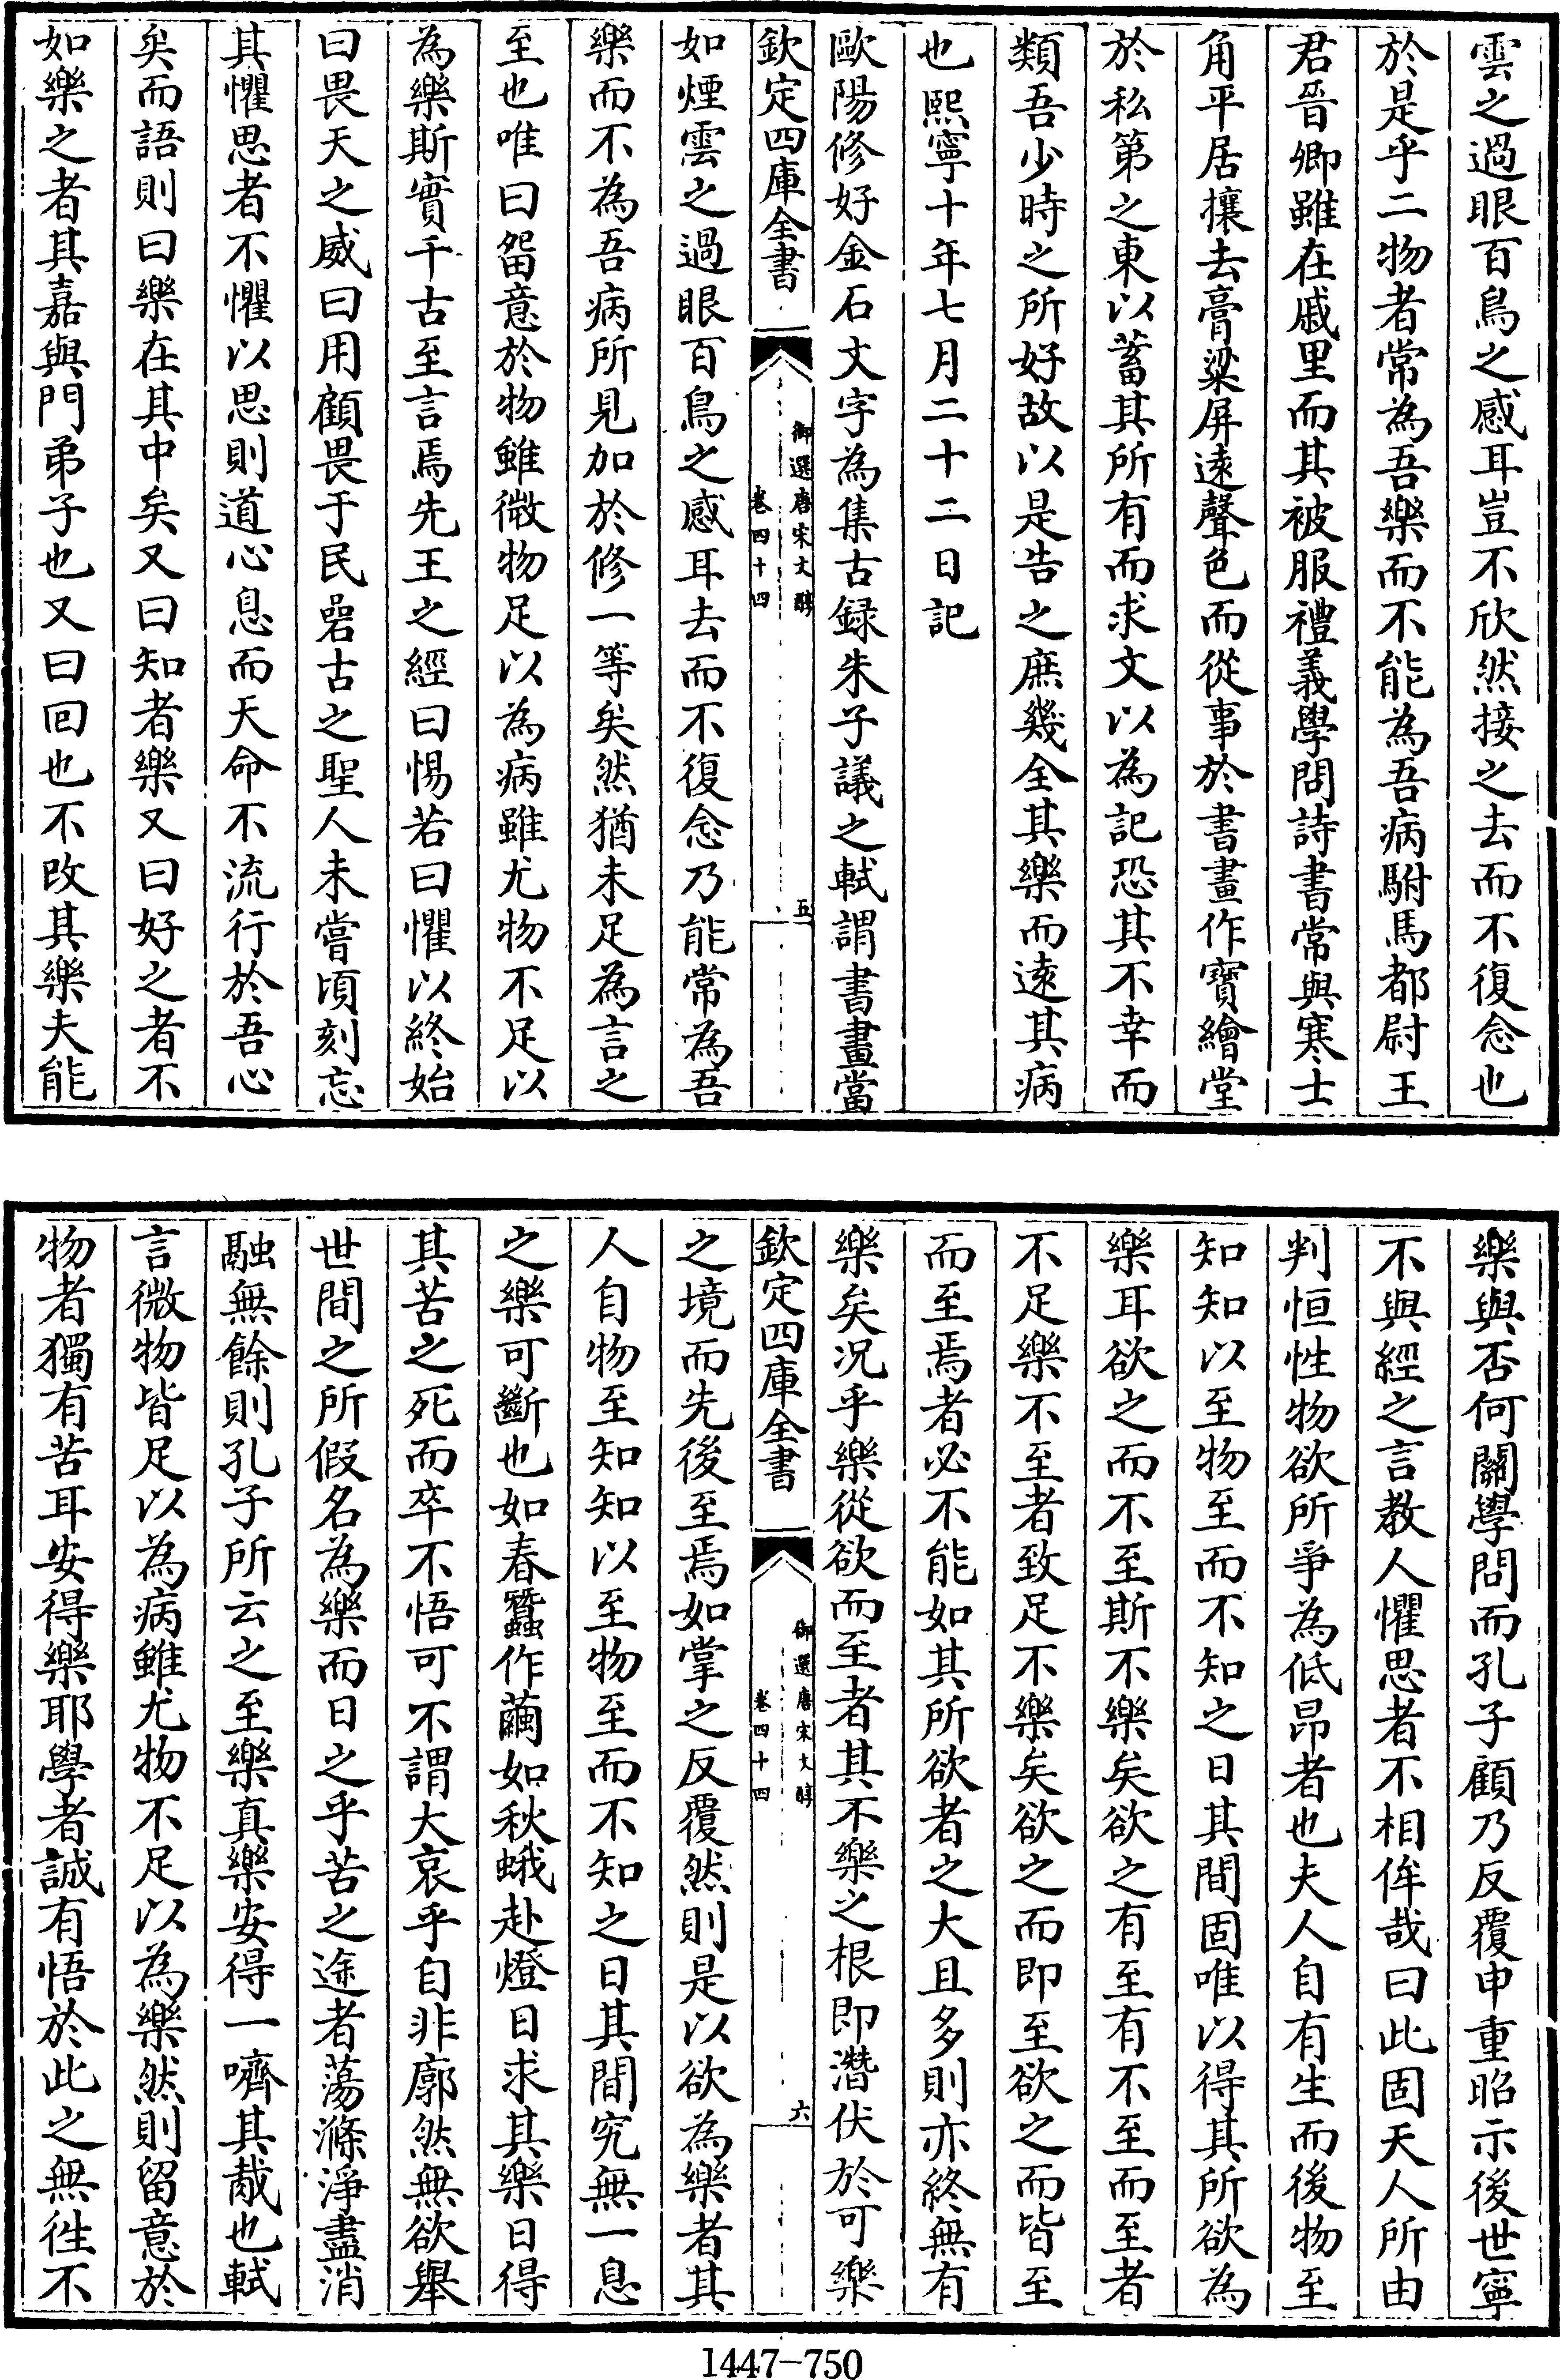 雲之過眼百鳥之感耳豈不欣然接之去而不復念也
於是乎二物者常為吾樂而不能為吾病駙馬都尉王
君晉卿雖在戚里而其被服禮義學問詩書常與寒士
角平居攘去膏粱屏逺聲色而從事於書畫作寳繪堂
於私第之東以蓄其所有而求文以為記恐其不幸而
類吾少時之所好故以是告之庶幾全其樂而逺其病
也熙寧十年七月二十二日記
歐陽修好金石文字為集古録朱子議之軾謂書畫當
欽定四庫全書
御選唐宋文醇
卷四十四
五
如煙雲之過眼百鳥之感耳去而不復念乃能常為吾
樂而不為吾病所見加於修一等矣然猶未足為言之
至也唯曰留意於物雖微物足以為病雖尤物不足以
為樂斯實千古至言焉先王之經曰惕若曰懼以終始
曰畏天之威曰用顧畏于民碞古之聖人未嘗頃刻忘
其懼思者不懼以思則道心息而天命不流行於吾心
矣而語則曰樂在其中矣又曰知者樂又曰好之者不
如樂之者其嘉與門弟子也又曰回也不改其樂夫能
樂與否何關學問而孔子顧乃反覆申重昭示後世寧
不與經之言教人懼思者不相侔哉曰此固天人所由
判恒性物欲所爭為低昂者也夫人自有生而後物至
知知以至物至而不知之日其間固唯以得其所欲為
樂耳欲之而不至斯不樂矣欲之有至有不至而至者
不足樂不至者致足不樂矣欲之而即至欲之而皆至
而至焉者必不能如其所欲者之大且多則亦終無有
樂矣况乎樂從欲而至者其不樂之根即潛伏於可樂
欽定四庫全書
御選唐宋文醇
卷四十四
六
之境而先後至焉如掌之反覆然則是以欲為樂者其
人自物至知知以至物至而不知之日其間究無一息
之樂可斷也如春蠶作繭如秋蛾赴燈日求其樂日得
其苦之死而卒不悟可不謂大哀乎自非廓然無欲舉
世間之所假名為樂而日之乎苦之途者蕩滌淨盡消
融無餘則孔子所云之至樂真樂安得一嚌其胾也軾
言微物皆足以為病雖尤物不足以為樂然則留意於
物者獨有苦耳安得樂耶學者誠有悟於此之無徃不
1447-750